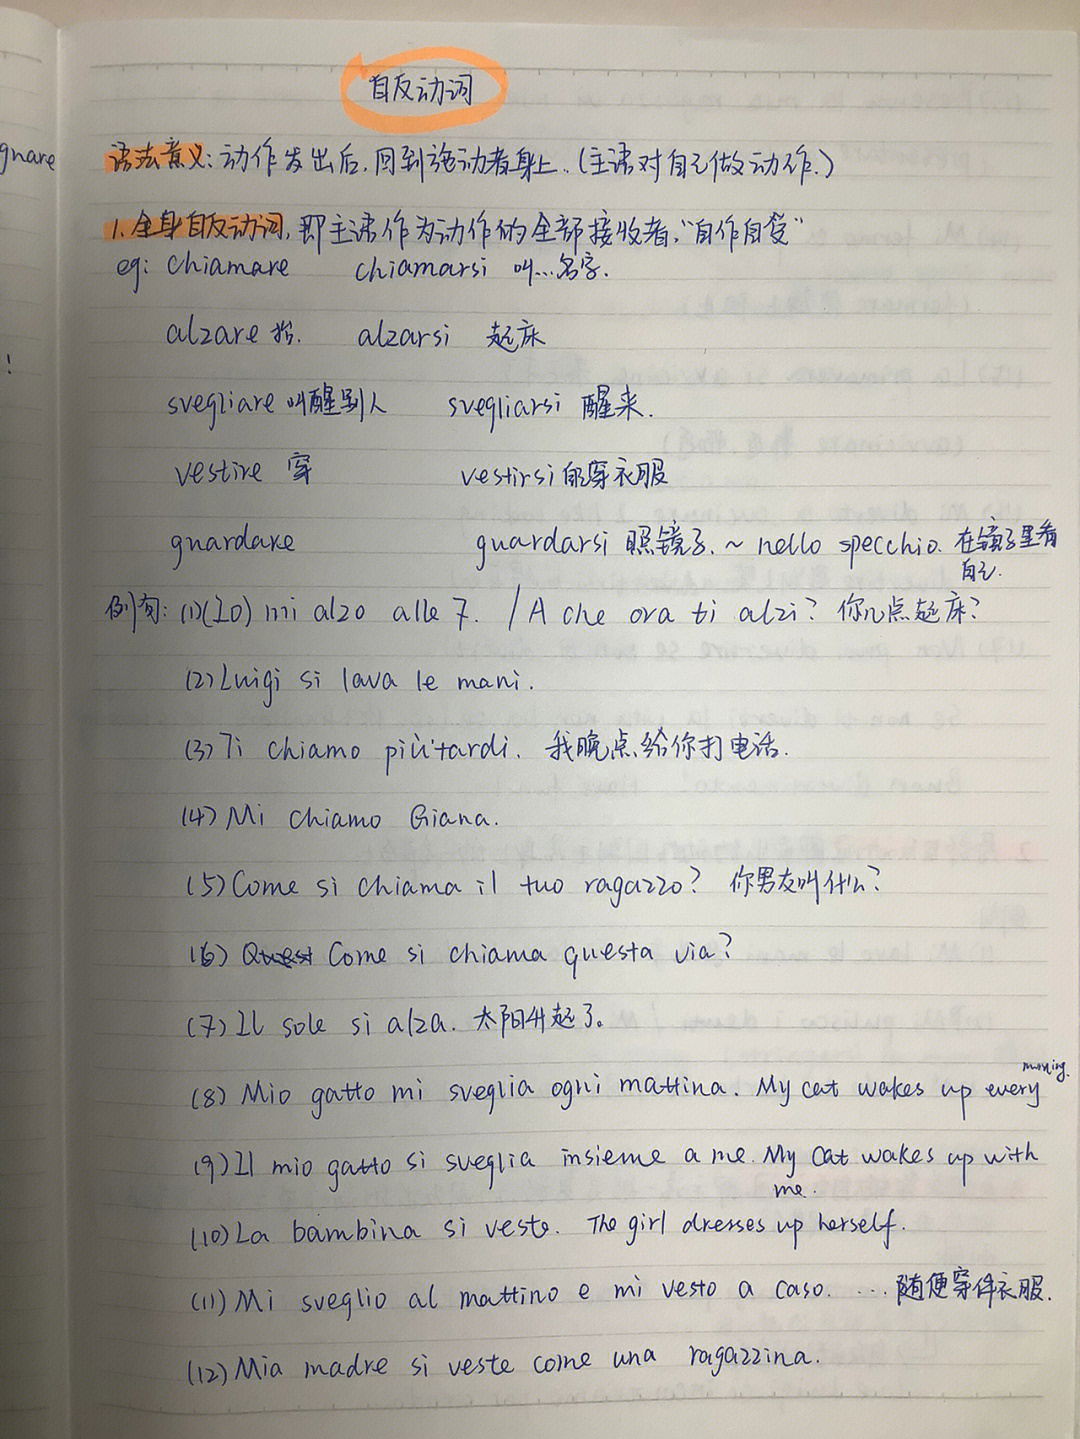 gnare
!
自反动词
语法意义: 动作发出后, 回到施动者身上. (主语对自己做动作.)
1. 全身自反动词, 即主语作为动作的全部接收者, "自作自受"
eg: chiamare chiamarsi 叫...名字.
alzare 抬. alzarsi 起床
svegliare 叫醒别人 svegliarsi 醒来.
vestire 穿 vestirsi 自己穿衣服
guardare guardarsi 照镜子. ~ nello specchio. 在镜子里看
自己.
例句: (1)(Io) mi alzo alle 7. / A che ora ti alzi? 你几点起床?
(2) Luigi si lava le mani.
(3) Ti chiamo più tardi. 我晚点给你打电话.
(4) Mi chiamo Giana.
(5) Come si chiama il tuo ragazzo? 你男友叫什么?
(6) Quest Come si chiama questa via?
(7) Il sole si alza. 太阳升起了。
(8) Mio gatto mi sveglia ogni mattina. My cat wakes up every morning.
(9) Il mio gatto si sveglia insieme a me. My cat wakes up with
me.
(10) La bambina si veste. The girl dresses up herself.
(11) Mi sveglio al mattino e mi vesto a caso. ... 随便穿件衣服.
(12) Mia madre si veste come una ragazzina.